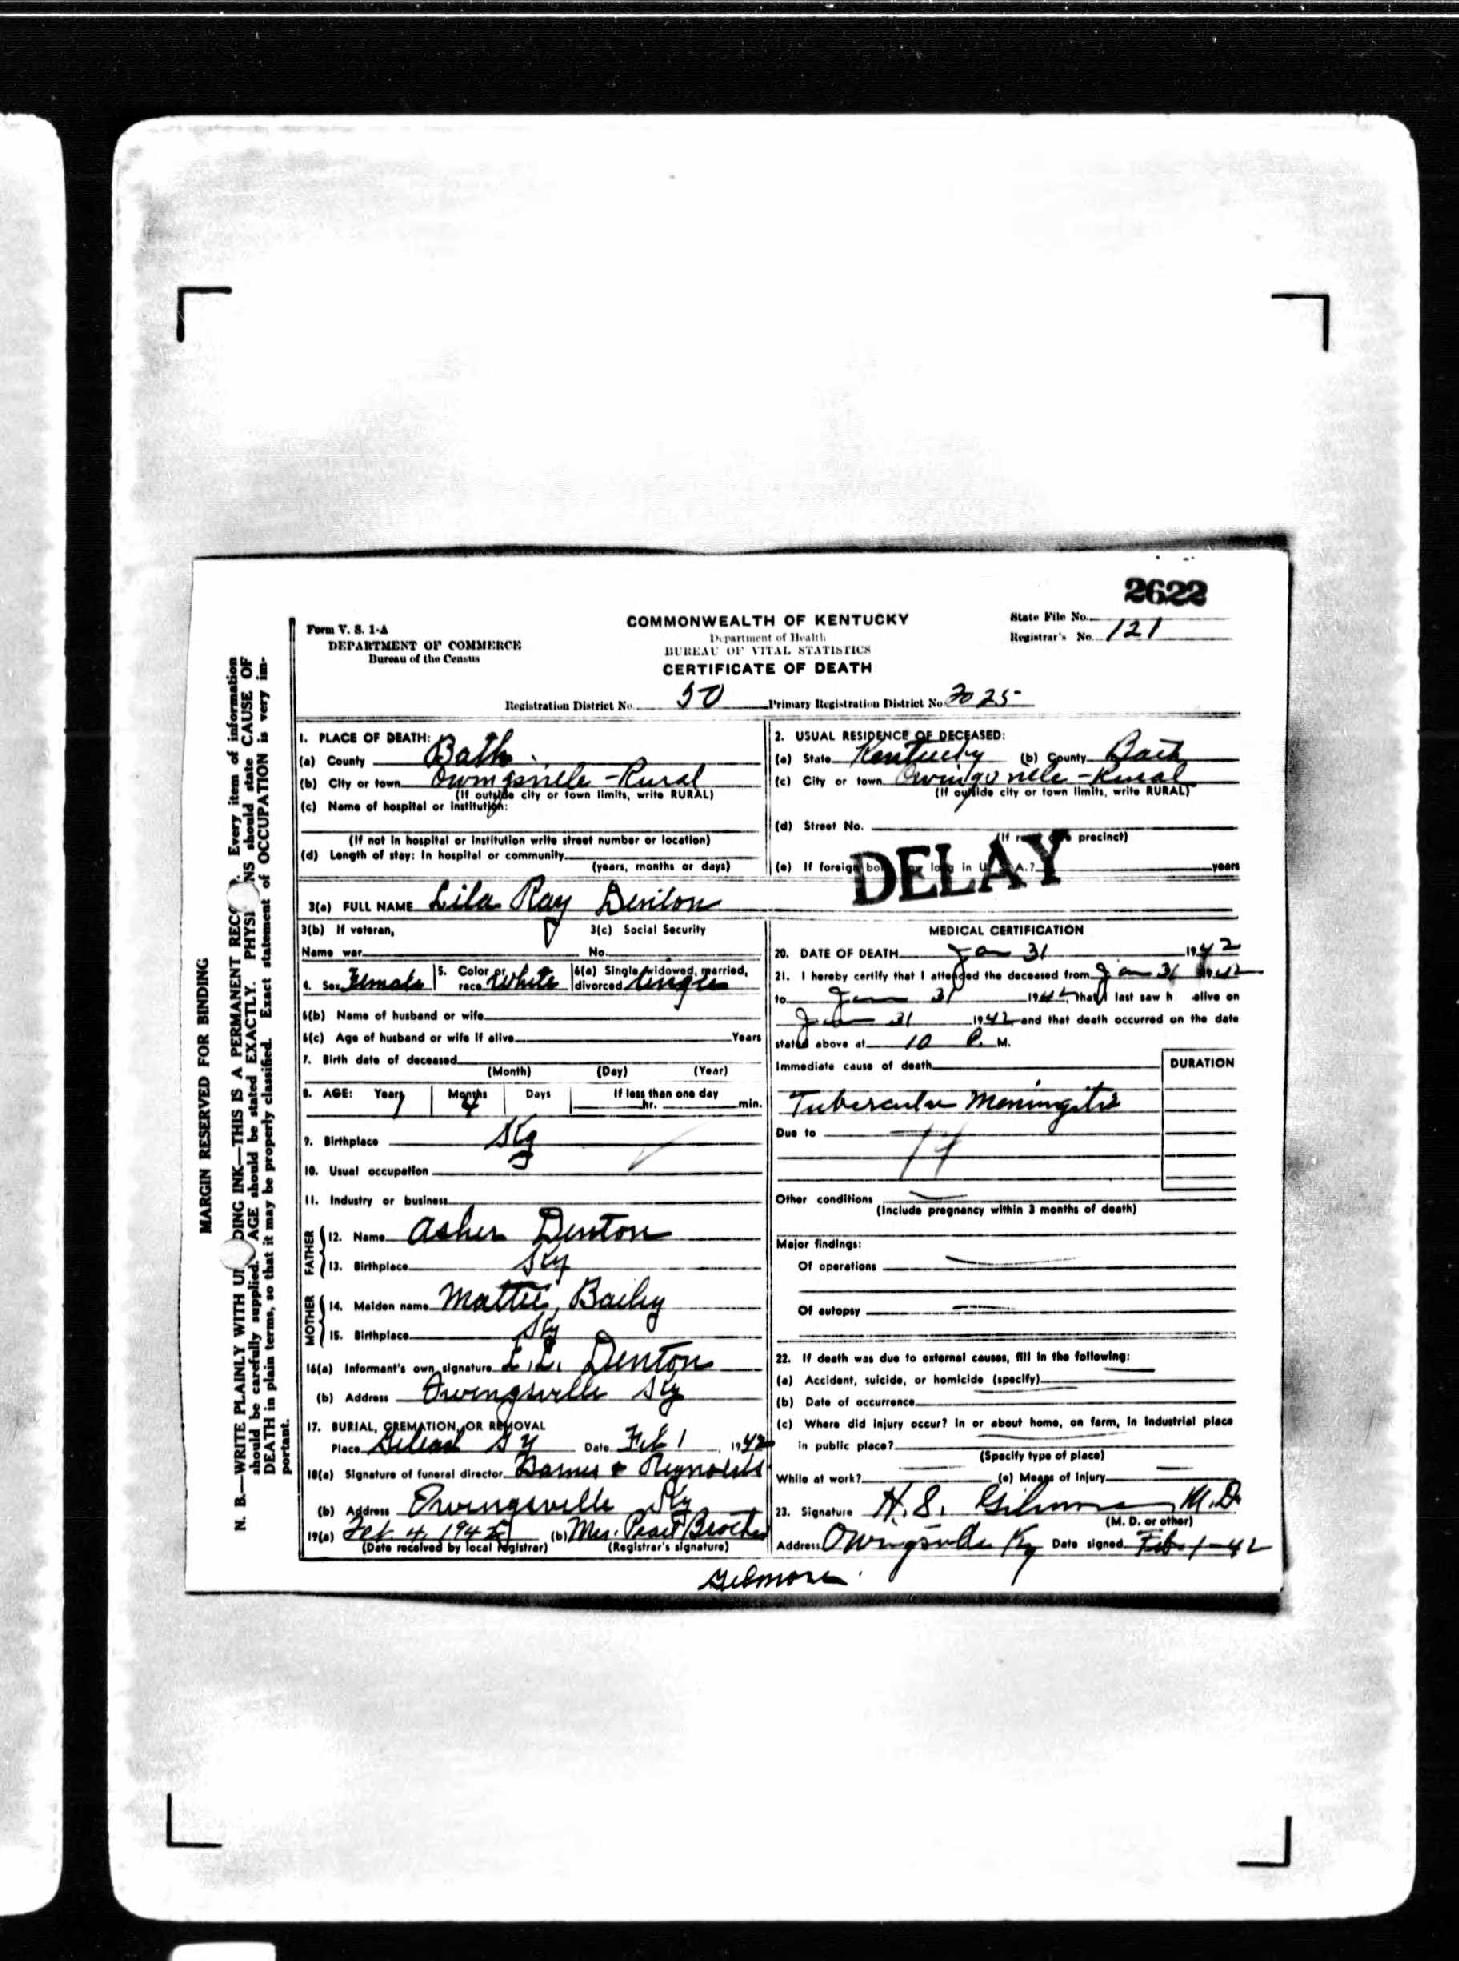 2622
Form V. S. 1-A
DEPARTMENT OF COMMERCE
Bureau of the Census
COMMONWEALTH OF KENTUCKY
Department of Health
BUREAU OF VITAL STATISTICS
CERTIFICATE OF DEATH
State File No.
Registrar's No. 121
Registration District No. 50 Primary Registration District No. 7025
MARGIN RESERVED FOR BINDING
N. B.—WRITE PLAINLY WITH DING INK—THIS IS A PERMANENT Every item of information
should be carefully supplied. AGE should be stated EXACTLY. should state CAUSE OF
DEATH in plain terms, so that it may be properly classified. Exact statement of OCCUPATION is very im-
portant.
1. PLACE OF DEATH:
(a) County Bath
(b) City or town Owingsville - Rural
(If outside city or town limits, write RURAL)
(c) Name of hospital or institution:
(If not in hospital or institution write street number or location)
(d) Length of stay: In hospital or community
(years, months or days)
2. USUAL RESIDENCE OF DECEASED:
(a) State Kentucky (b) County Bath
(c) City or town Owingsville - Rural
(If outside city or town limits, write RURAL)
(d) Street No.
precinct)
(e) If foreign years
DELAY
3(a) FULL NAME Lila Ray Denton
3(b) If veteran, 3(c) Social Security
Name war No.
4. Sex Female 5. Color or race White 6(a) Single, widowed, married, divorced Single
6(b) Name of husband or wife
6(c) Age of husband or wife if alive Years
7. Birth date of deceased
(Month) (Day) (Year)
8. AGE: Years 7 Months 4 Days If less than one day
hr. min.
9. Birthplace Ky
10. Usual occupation
11. Industry or business
FATHER
12. Name Asher Denton
13. Birthplace Ky
MOTHER
14. Maiden name Mattie Bailey
15. Birthplace Ky
16(a) Informant's own signature L. L. Denton
(b) Address Owingsville Ky
17. BURIAL, CREMATION, OR REMOVAL
Place Ky Date Feb 1, 1942
18(a) Signature of funeral director Barnes & Reynolds
(b) Address Owingsville Ky
19(a) Feb 4, 1942 (b) Mrs. Pearl
(Date received by local registrar) (Registrar's signature)
MEDICAL CERTIFICATION
20. DATE OF DEATH Jan 31 1942
21. I hereby certify that I attended the deceased from Jan 31 1942
to Jan 31 1942 that I last saw h alive on
Jan 31 1942 and that death occurred on the date
stated above at 10 P. M.
Immediate cause of death DURATION
Tubercular Meningitis
Due to
14
Other conditions
(Include pregnancy within 3 months of death)
Major findings:
Of operations
Of autopsy
22. If death was due to external causes, fill in the following:
(a) Accident, suicide, or homicide (specify)
(b) Date of occurrence
(c) Where did injury occur? In or about home, on farm, in industrial place
in public place?
(Specify type of place)
While at work? (e) Means of injury
23. Signature H. S. Gilmore M.D.
(M. D. or other)
Address Owingsville Ky Date signed Feb-1-42
Gilmore